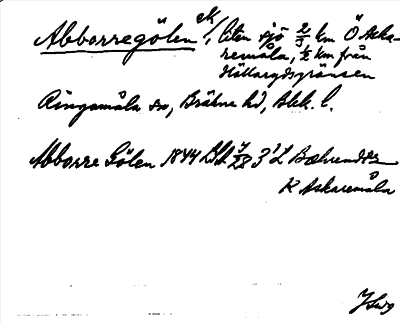 Abborregölen, liten sjö 2/3 km Ö Aska-
remåla, 1/2 km från
Hällarydsgränsen
Ringamåla sn, Bräkne hd, Blek. l.
Abborre Gölen 1844
K Askaremåla